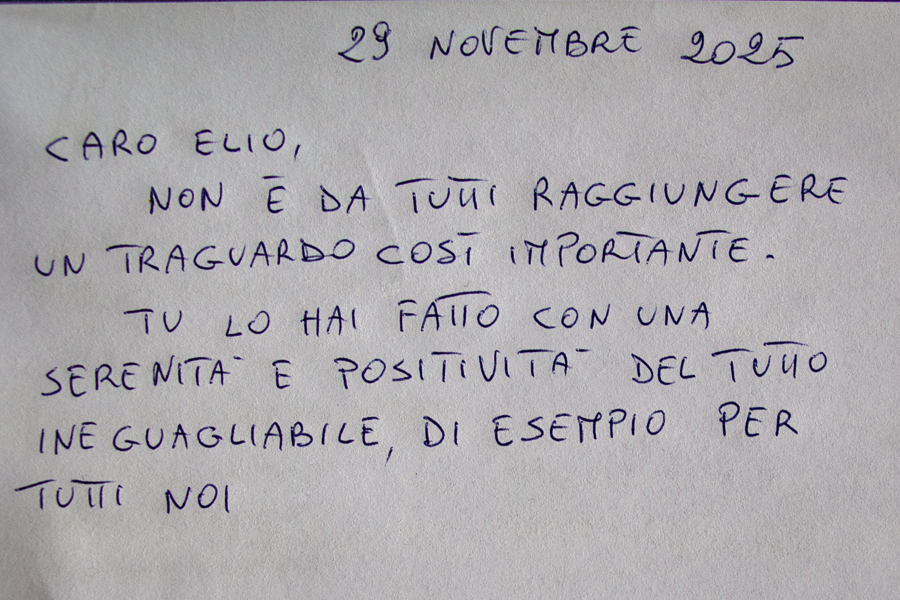 29 NOVEMBRE 2025
CARO ELIO,
NON È DA TUTTI RAGGIUNGERE
UN TRAGUARDO COSÌ IMPORTANTE.
TU LO HAI FATTO CON UNA
SERENITÀ E POSITIVITÀ DEL TUTTO
INEGUAGLIABILE, DI ESEMPIO PER
TUTTI NOI